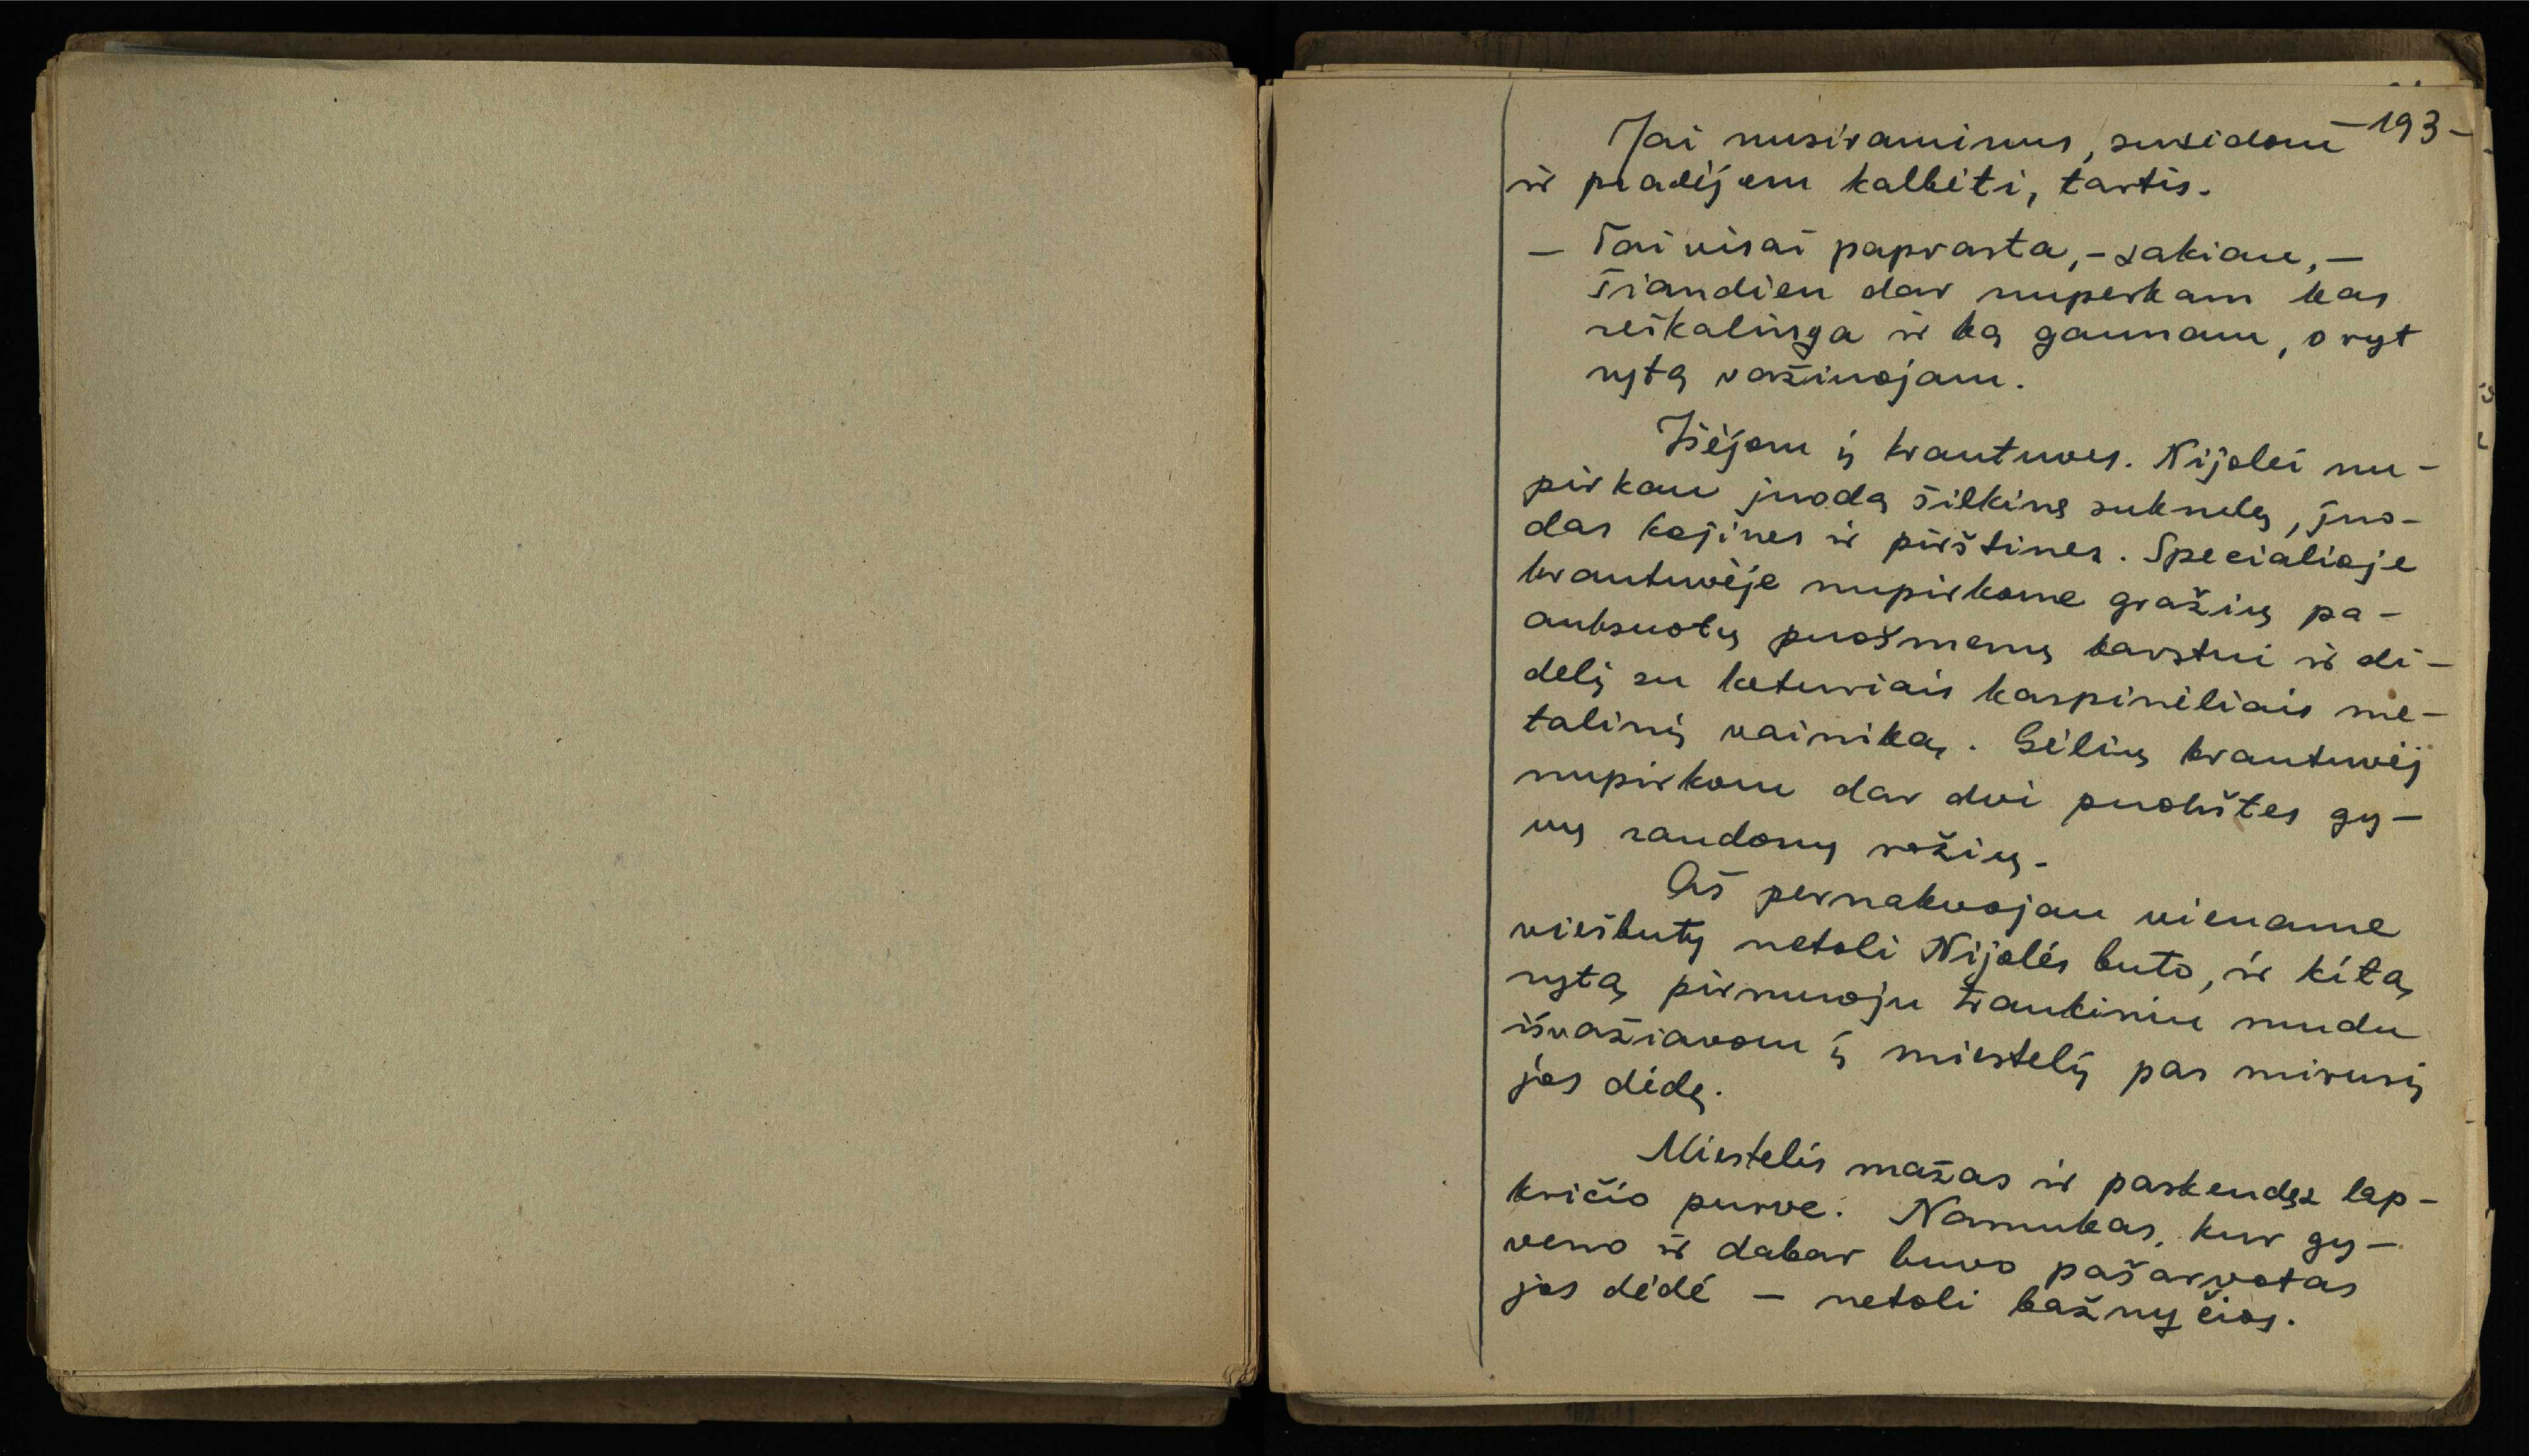 -193-
Jai nusiraminus, susėdom
ir pradėjom kalbėti, tartis.
— Tai visai paprasta, - sakiau, —
šiandien dar nuperkam kas
reikalinga ir ką gaunam, o ryt
rytą važiuojam.
Išėjom į krautuves. Nijolei nu-
pirkau juodą šilkinę suknelę, juo-
das kojines ir pirštines. Specialioje
krautuvėje nupirkome gražių pa-
auksuotų puošmenų karstui ir di-
delį su keturiais kaspinėliais me-
talinį vainiką. Gėlių krautuvėj
nupirkom dar dvi puokštes gy-
vų raudonų rožių.
Aš pernakvojau viename
viešbuty netoli Nijolės buto, ir kitą
rytą pirmuoju traukiniu mudu
išvažiavom į miestelį pas mirusį
jos dėdę.
Miestelis mažas ir paskendęs lap-
kričio purve. Namukas, kur gy-
veno ir dabar buvo pašarvotas
jos dėdė — netoli bažnyčios.